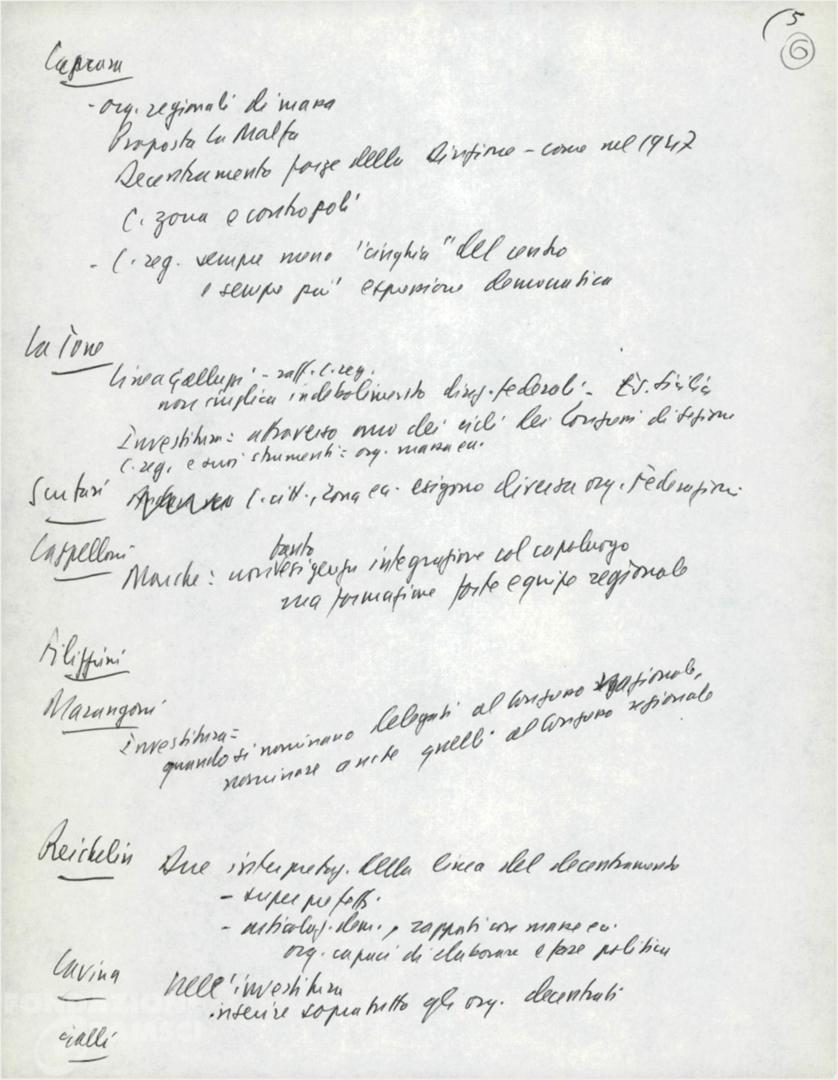 (5
6
Caprara
- org. regionali di massa
Proposta La Malfa
Decentramento forze della Direzione - come nel 1947
C. zona e contropoli
- C. reg. sempre meno "cinghia" del centro
e sempre più espressione democratica
La Torre
Linea Galluzzi - raff. C. reg.
non implica indebolimento direz. federali - Es. Sicilia
Investitura: attraverso uno dei cicli dei Congressi di sezione
C. reg. e suoi strumenti: org. massa ecc.
Scutari C. citt., zona ecc. esigono diversa org. Federazioni
Cappelloni
Marche: non tanto esigenza integrazione col capoluogo
ma formazione forte equipe regionale
Filippini
Marangoni
Investitura:
quando si nominano delegati al Congresso
nominare anche quelli al Congresso regionale
Reichlin Due interpretaz. della linea del decentramento
- superprefetti
- articolaz. dem., rapporti con masse ecc.
org. capaci di elaborare e fare politica
Cavina Nell'investitura
inserire sopratutto gli org. decentrati
Galli
FONDAZIONE
GRAMSCI